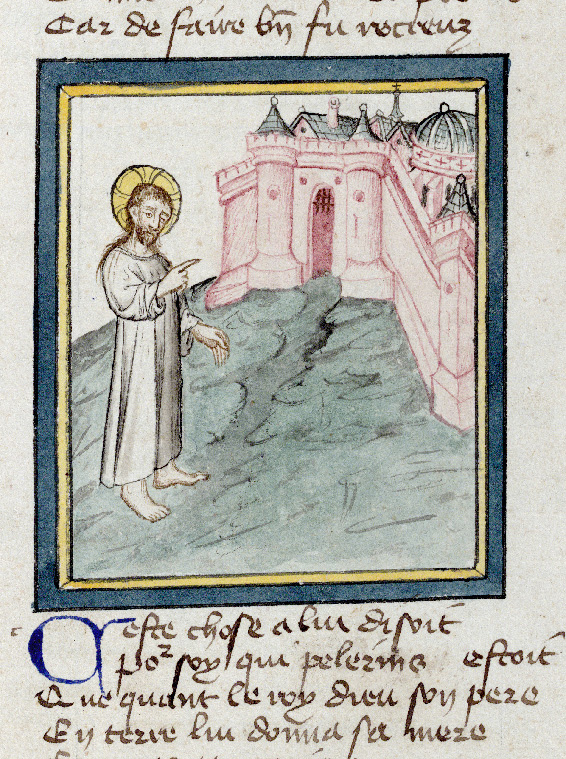 Car de faire bñ fu vocteuz
Ceste chose a lui disoit
Por soy qui pelerins estoit
Que quant le roy dieu son pere
En terre lui donna sa mere